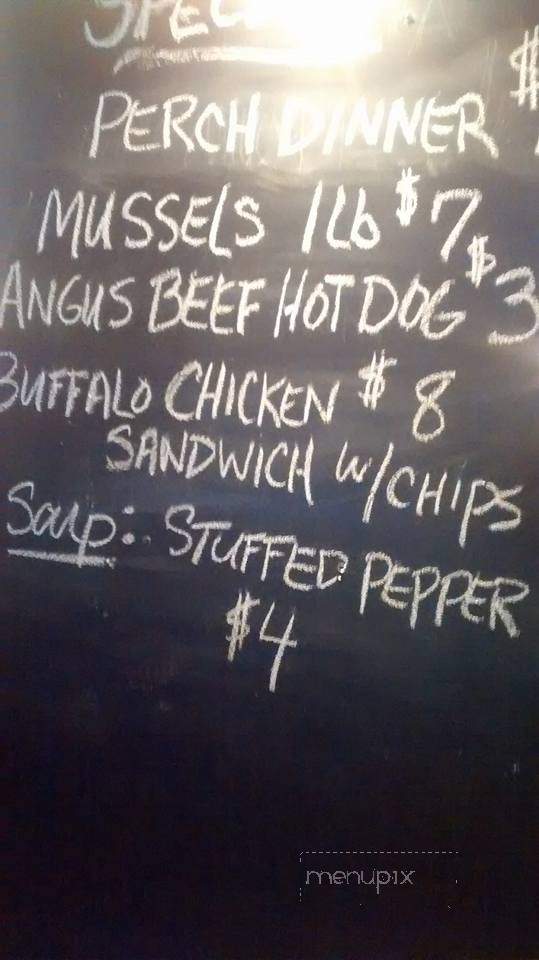 SPEC
PERCH DINNER $
MUSSELS 1Lb $7
ANGUS BEEF HOT DOG $3
BUFFALO CHICKEN $8
SANDWICH W/CHIPS
Soup: STUFFED PEPPER
$4
menupix